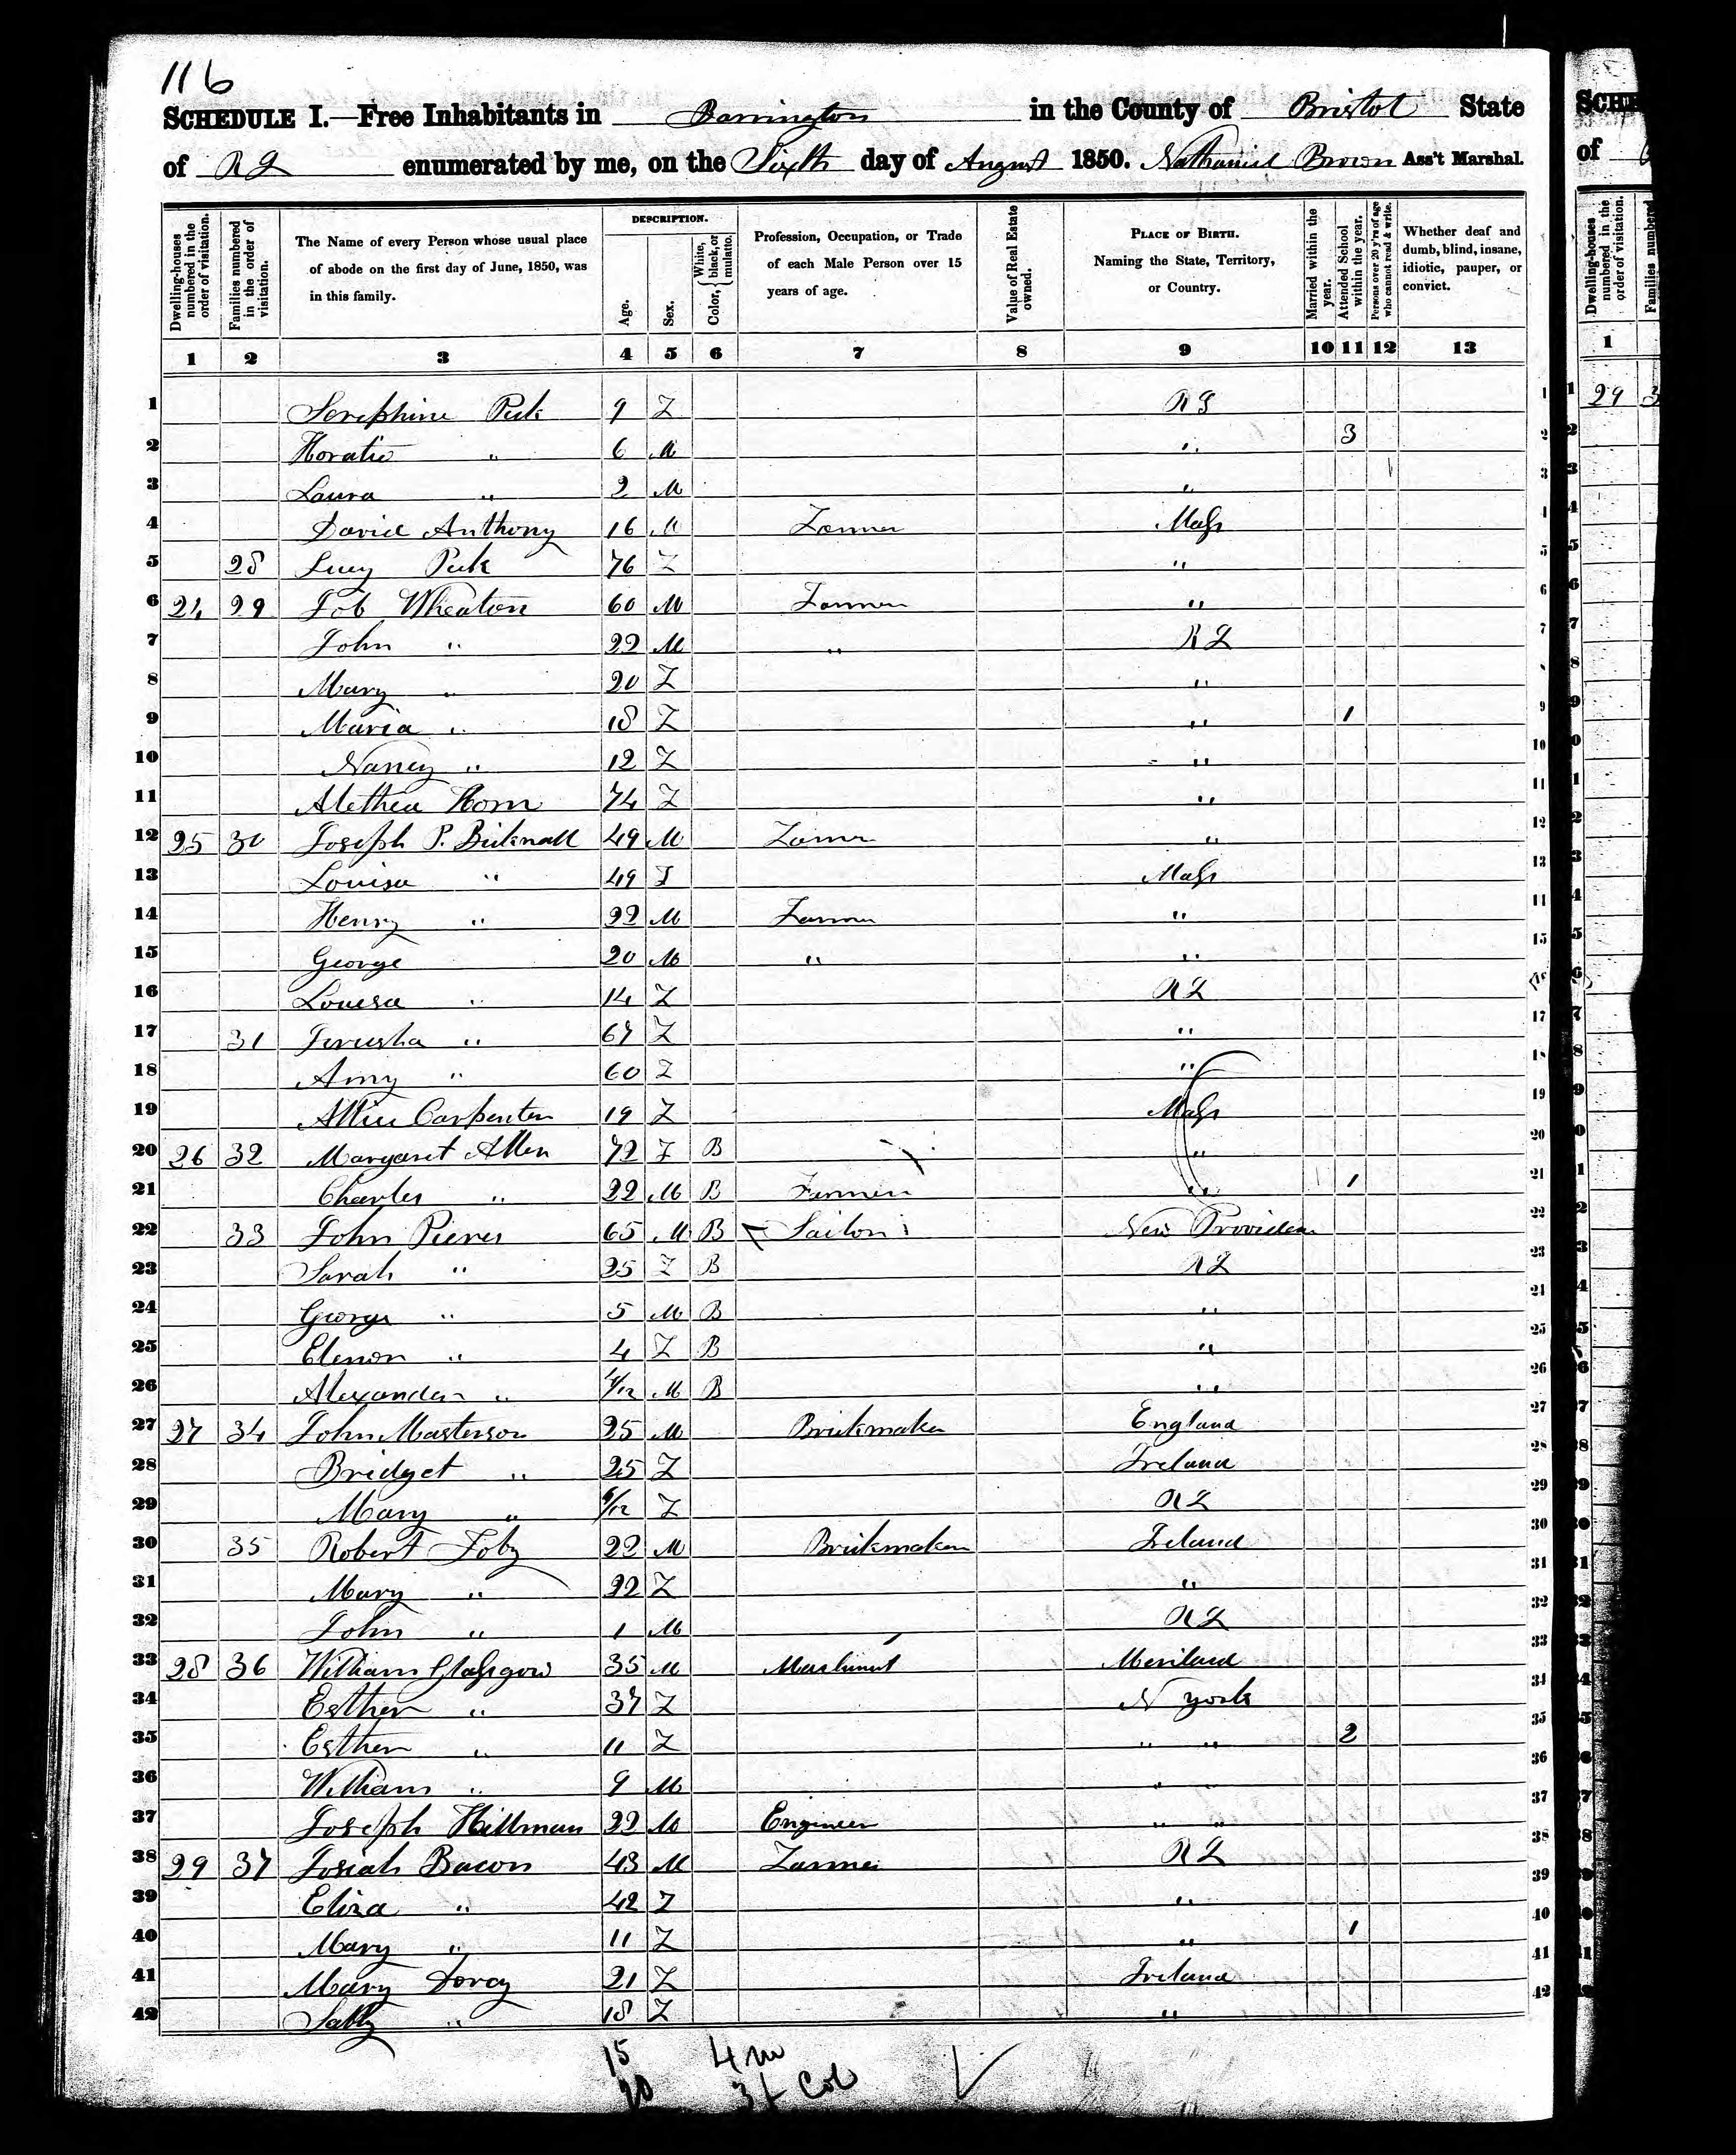 116
SCHEDULE I.—Free Inhabitants in Barrington in the County of Bristol State
of R I enumerated by me, on the Sixth day of August 1850. Nathaniel Brown Ass't Marshal.
Dwelling-houses numbered in the order of visitation.
Families numbered in the order of visitation.
The Name of every Person whose usual place of abode on the first day of June, 1850, was in this family.
DESCRIPTION.
Age.
Sex.
Color, { White, black, or mulatto.
Profession, Occupation, or Trade of each Male Person over 15 years of age.
Value of Real Estate owned.
PLACE OF BIRTH. Naming the State, Territory, or Country.
Married within the year.
Attended School within the year.
Persons over 20 y'rs of age who cannot read & write.
Whether deaf and dumb, blind, insane, idiotic, pauper, or convict.
1 2 3 4 5 6 7 8 9 10 11 12 13
1 Serephine Peck 9 F R I 1
2 Horatio " 6 M " 3 2
3 Laura " 2 M " 3
4 David Anthony 16 M Farmer Mass 4
5 28 Lucy Peck 76 F " 5
6 24 29 Job Wheaton 60 M Farmer " 6
7 John " 22 M " R I 7
8 Mary " 20 F " 8
9 Maria " 18 F " 1 9
10 Nancy " 12 F " 10
11 Alethea Horn 74 F " 11
12 25 30 Joseph P. Bicknall 49 M Farmer " 12
13 Louisa " 49 F Mass 13
14 Henry " 22 M Farmer " 14
15 George 20 M " " 15
16 Louesa " 14 F R I
17 31 Jerusha " 67 F " 17
18 Amy " 60 F " 18
19 Carpenter 19 F Mass 19
20 26 32 Margaret Allen 72 F B " 20
21 Charles " 22 M B Farmer " 1 21
22 33 John Pierces 65 M B Sailor New Providen 22
23 Sarah " 25 F B R I 23
24 George " 5 M B " 24
25 Elenor " 4 F B " 25
26 Alexander " /12 M B " 26
27 27 34 John Masterson 25 M Brickmaker England 27
28 Bridget " 25 F Ireland 28
29 Mary " /12 F R I 29
30 35 Robert Foby 22 M Brickmaker Ireland 30
31 Mary " 22 F " 31
32 John " 1 M R I 32
33 28 36 William Glasgow 35 M Mashinist Meriland 33
34 Esther " 37 F N York 34
35 Esther " 11 F " " 2 35
36 William " 9 M " " 36
37 Joseph Hillman 22 M Engineer " " 37
38 29 37 Josiah Bacon 43 M Farmer R I 38
39 Eliza " 42 F " 39
40 Mary " 11 F " 1 40
41 Mary Dorcy 21 F Ireland 41
42 Sally " 18 F " 42
15 4 m
20 3 f Col
SCHE
of
Dwelling-houses numbered in the order of visitation.
Families numbered
1
29 3